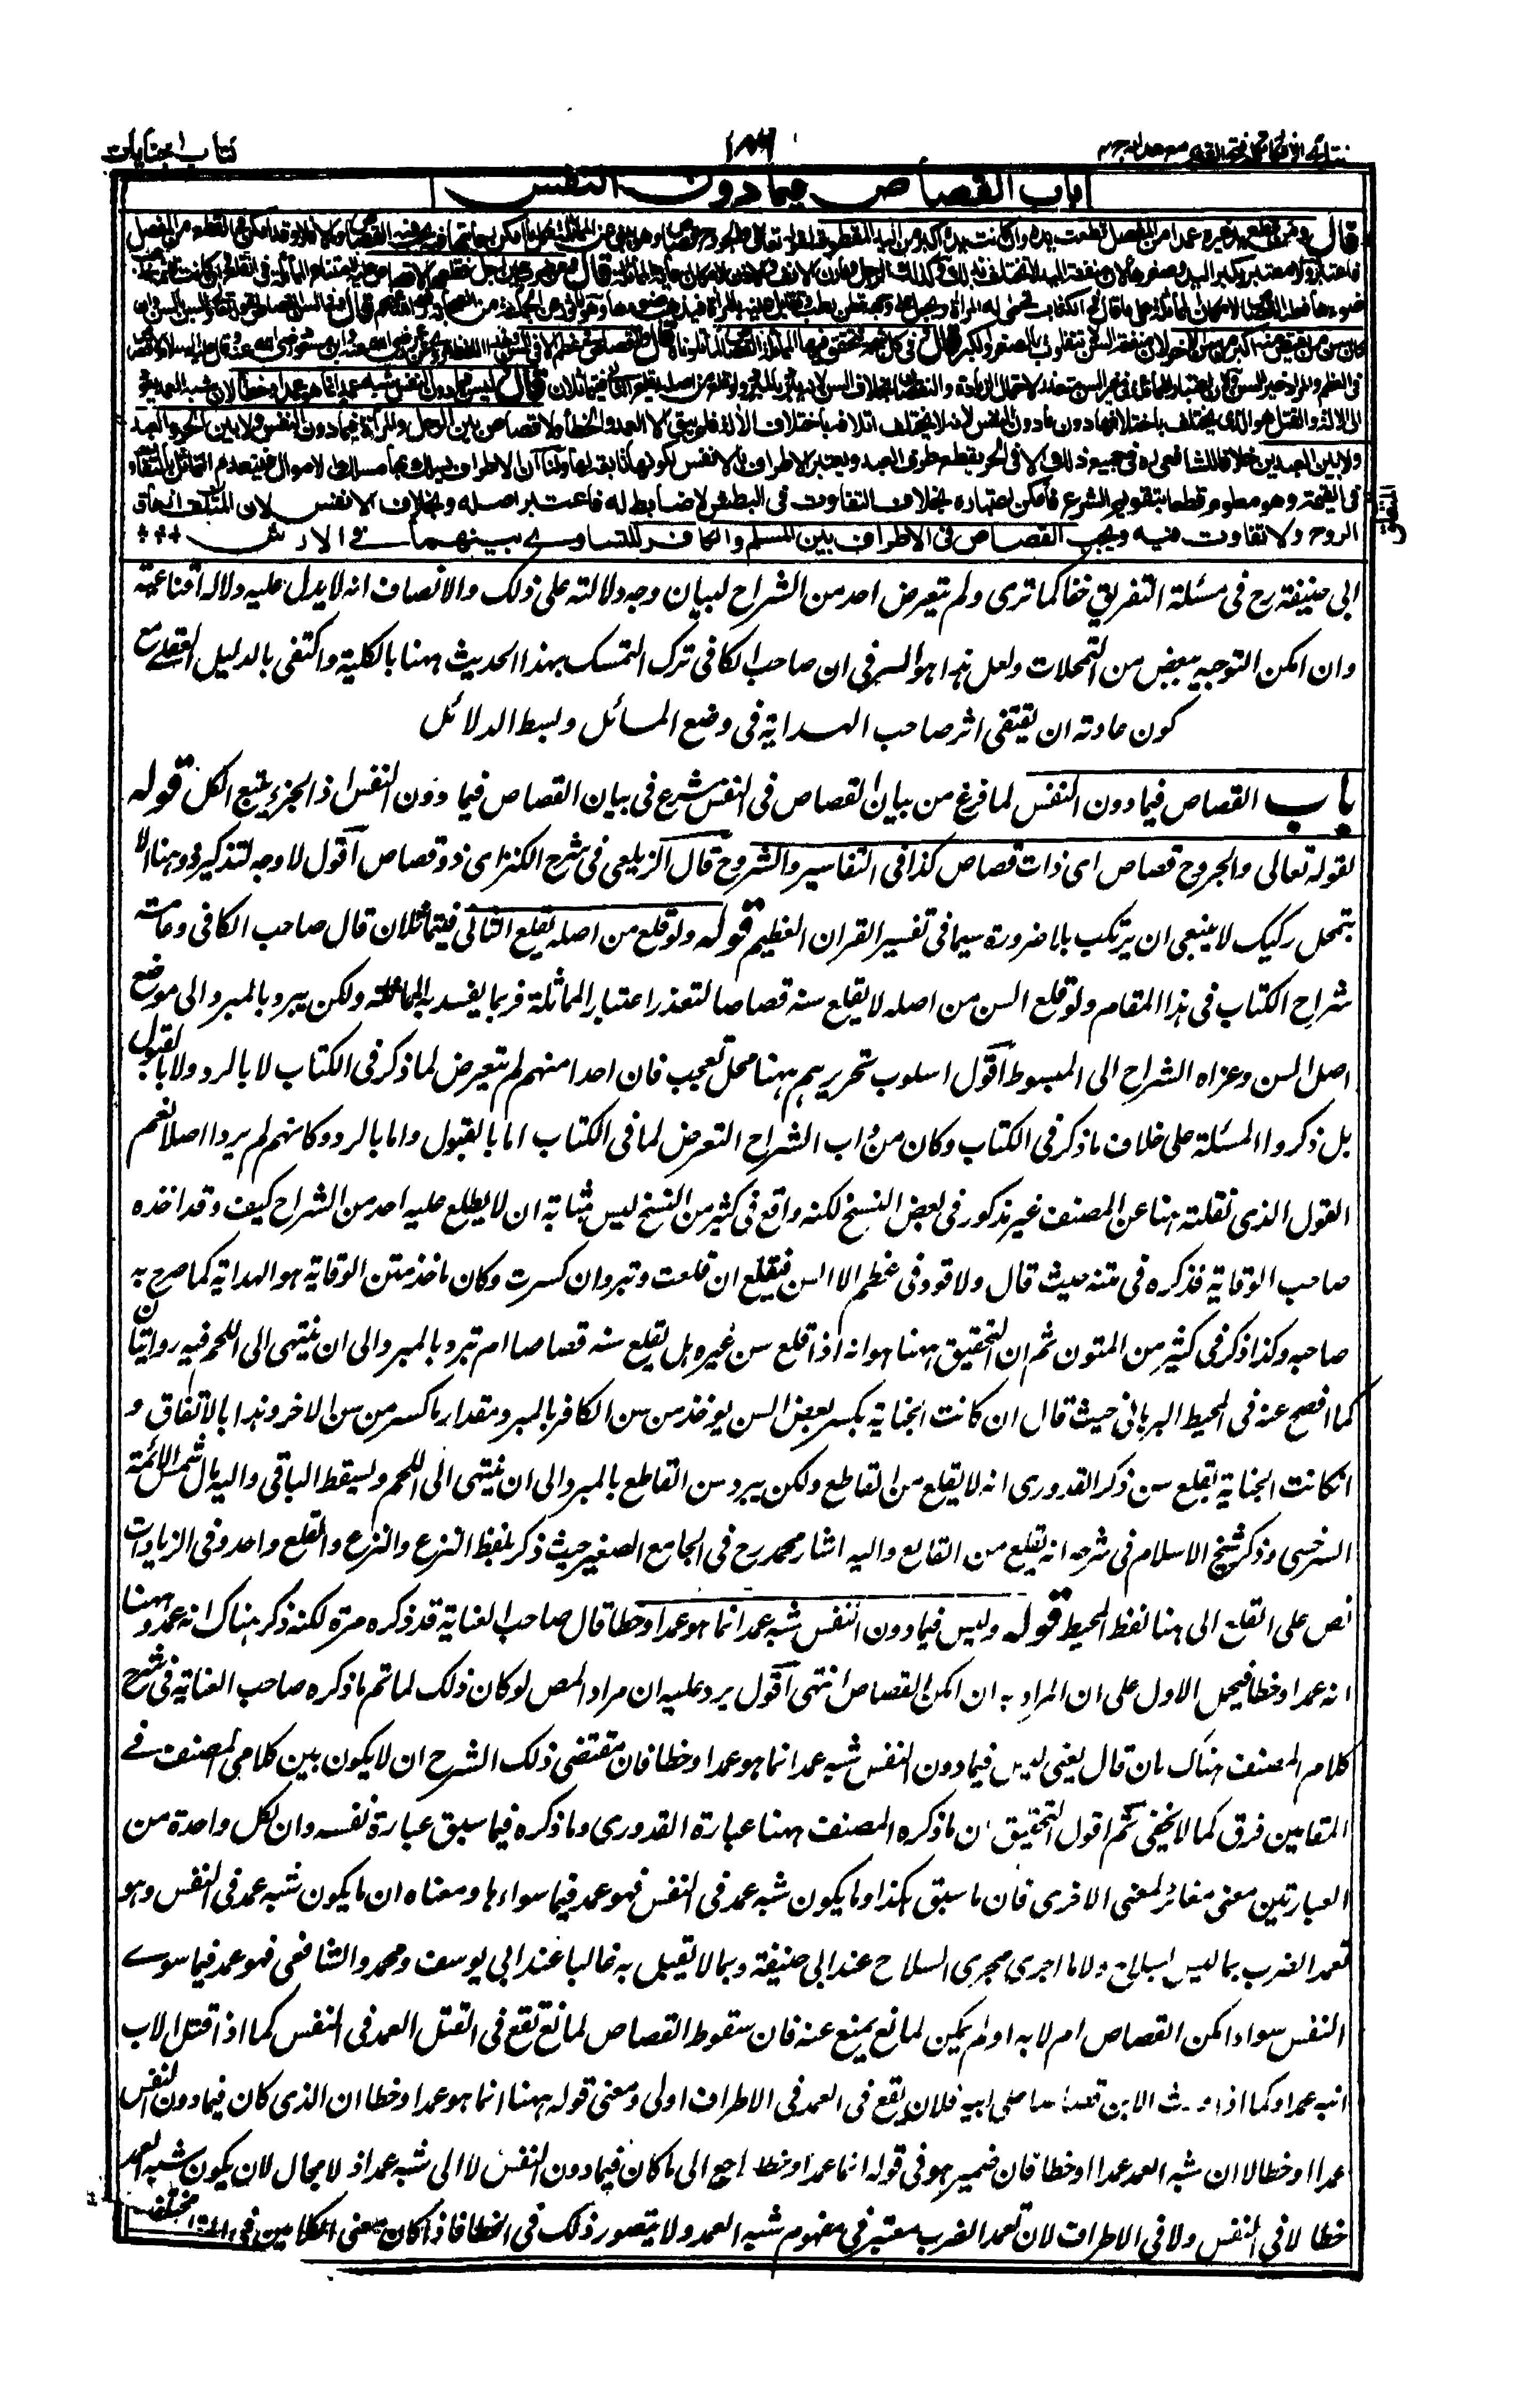 كتاب الجنايات
باب القصاص فيما دون النفس
قال ومن قطع يد غيره عمدا من المفصل قطعت يده وان كانت يده اكبر من اليد المقطوعة لقوله تعالى والجروح قصاص وهو ينبئ عن المماثلة فكل ما امكن رعايتها فيه يجب فيه القصاص وما لا فلا وقد امكن في القطع من المفصل
فاعتبر ولا معتبر بكبر اليد وصغرها لان منفعة اليد لا تختلف بذلك وكذلك الرجل ومارن الانف والاذن لامكان رعاية المماثلة قال ومن ضرب عين رجل فقلعها لا قصاص عليه لامتناع المماثلة في القلع وان كانت قائمة فذهب
ضوءها فعليه القصاص لامكان المماثلة على ما قال في الكتاب تحمى له المرآة ويجعل على وجهه قطن رطب وتقابل عينه بالمرآة فيذهب ضوءها وهو ماثور عن جماعة من الصحابة رضي الله عنهم قال وفي السن القصاص لقوله تعالى والسن بالسن وان
كان سن من يقتص منه اكبر من سن الآخر لان منفعة السن لا تتفاوت بالصغر والكبر قال وفي كل شجة تتحقق فيها المماثلة القصاص لما تلونا قال ولا قصاص في عظم الا في السن وهذا اللفظ مروي عن عمر وابن مسعود رضي الله عنهما وقال عليه السلام لا قصاص
في العظم والمراد غير السن ولان اعتبار المماثلة في غير السن متعذر لاحتمال الزيادة والنقصان بخلاف السن لانه يبرد بالمبرد ولو قلع من اصله يقلع الثاني فيتماثلان قال وليس فيما دون النفس شبه عمد انما هو عمد او خطأ لان شبه العمد يعود
الى الآلة والقتل هو الذي يختلف باختلافها دون ما دون النفس لانه لا يختلف اتلافه باختلاف الآلة فلم يبق الا العمد والخطأ ولا قصاص بين الرجل والمرأة فيما دون النفس ولا بين الحر والعبد
ولا بين العبدين خلافا للشافعي ره في جميع ذلك الا في الحر يقطع طرف العبد ويعتبر الاطراف بالانفس لكونها تابعة لها ولنا ان الاطراف يسلك بها مسلك الاموال فينعدم التماثل بالتفاوت
في القيمة وهو معلوم قطعا بتقويم الشرع فامكن اعتباره بخلاف التفاوت في البطش لانه لا ضابط له فاعتبر اصله وبخلاف الانفس لان المتلف ازهاق
الروح ولا تفاوت فيه ويجب القصاص في الاطراف بين المسلم والكافر للتساوي بينهما في الارش
ابي حنيفة رح في مسئلة التفريق خفا كما ترى ولم يتعرض احد من الشراح لبيان وجه دلالته على ذلك والانصاف انه لا يدل عليه دلالة اقناعية
وان امكن التوجيه ببعض من التمحلات ولعل هذا هو السر في ان صاحب الكافي ترك التمسك بهذا الحديث ههنا بالكلية واكتفى بالدليل العقلي مع
كون عادته ان يقتفى اثر صاحب الهداية في وضع المسائل وبسط الدلائل
باب القصاص فيما دون النفس لما فرغ من بيان القصاص في النفس شرع في بيان القصاص فيما دون النفس اذ الجزء يتبع الكل قوله
لقوله تعالى والجروح قصاص اى ذات قصاص كذا في التفاسير والشروح قال الزيلعي في شرح الكنز اى ذو قصاص اقول لا وجه لتذكير ذو هنا الا
بتمحل ركيك لا ينبغي ان يرتكب بلا ضرورة سيما في تفسير القران العظيم قوله ولو قلع من اصله يقلع الثاني فيتماثلان قال صاحب الكافي وعامة
شراح الكتاب في هذا المقام ولو قلع السن من اصله لا يقلع سنه قصاصا لتعذر اعتبار المماثلة فربما يفسد به لهاته ولكن يبرد بالمبرد الى موضع
اصل السن وعزاه الشراح الى المبسوط اقول اسلوب تحريرهم ههنا محل تعجب فان احدا منهم لم يتعرض لما ذكر في الكتاب لا بالرد ولا بالقبول
بل ذكروا المسئلة على خلاف ما ذكر في الكتاب وكان من داب الشراح التعرض لما في الكتاب اما بالقبول واما بالرد وكانهم لم يروا اصلا نعم
القول الذى نقلته هنا عن المصنف غير مذكور في بعض النسخ لكنه واقع في كثير من النسخ ليس بمثابة ان لا يطلع عليه احد من الشراح كيف وقد اخذه
صاحب الوقاية فذكره في متنه حيث قال ولا قود في عظم الا السن فيقلع ان قلعت وتبرد ان كسرت وكان ماخذ متن الوقاية هو الهداية كما صرح به
صاحبه وكذا ذكر في كثير من المتون ثم ان التحقيق ههنا هو انه اذا قلع سن غيره هل يقلع سنه قصاصا ام تبرد بالمبرد الى ان ينتهى الى اللحم فيه روايتان
كما افصح عنه في المحيط البرهاني حيث قال ان كانت الجناية بكسر بعض السن يوخذ من سن الكاسر بالمبرد مقدار ما كسر من سن الاخر وهذا بالاتفاق و
ان كانت الجناية بقلع سن ذكر القدورى انه لا يقلع سن القاطع ولكن يبرد سن القاطع بالمبرد الى ان ينتهى الى اللحم ويسقط الباقى واليه مال شمس الائمة
السرخسى وذكر شيخ الاسلام في شرحه انه يقلع سن القالع واليه اشار محمد رح في الجامع الصغير حيث ذكر بلفظ النزع والنزع والقلع واحد وفي الزيادات
نص على القلع الى هنا لفظ المحيط قوله وليس فيما دون النفس شبه عمد انما هو عمد او خطا قال صاحب العناية قد ذكره مرة لكنه ذكر هناك انه عمد وههنا
انه عمد او خطا فيحمل الاول على ان المراد به ان امكن القصاص انتهى اقول يرد عليه ان مراد المص لو كان ذلك لما تم ما ذكره صاحب العناية في شرح
كلام المصنف هناك بان قال يعنى ليس فيما دون النفس شبه عمد انما هو عمد او خطا فان مقتضى ذلك الشرح ان لا يكون بين كلامى المصنف في
المقامين فرق كما لا يخفى ثم اقول التحقيق ان ما ذكره المصنف ههنا عبارة القدورى وما ذكره فيما سبق عبارة نفسه وان لكل واحدة من
العبارتين معنى مغائر لمعنى الاخرى فان ما سبق هكذا وما يكون شبه عمد في النفس فهو عمد فيما سواها ومعناه ان ما يكون شبه عمد في النفس وهو
تعمد الضرب بما ليس بسلاح ولا ما اجرى مجرى السلاح عند ابى حنيفة وبما لا يقتل به غالبا عند ابى يوسف ومحمد والشافعى فهو عمد فيما سوى
النفس سواء امكن القصاص ام لا به اولم يمكن لمانع يمنع عنه فان سقوط القصاص لمانع تقع في القتل العمد في النفس كما اذا قتل الاب
ابنه عمدا وكما اذا ورث الابن قصاصا على ابيه فلان يقع في العمد في الاطراف اولى ومعنى قوله ههنا انما هو عمد او خطا ان الذى كان فيما دون النفس
عمدا او خطا لا ان شبه العمد عمدا او خطا فان ضمير هو في قوله انما عمد او خطا راجع الى ما كان فيما دون النفس لا الى شبه عمد اذ لا مجال لان يكون شبه العمد
خطا لا في النفس ولا في الاطراف لان تعمد الضرب معتبر في مفهوم شبه العمد ولا يتصور ذلك في الخطا فاذا كان معنى الكلامين في المقامين مختلفا